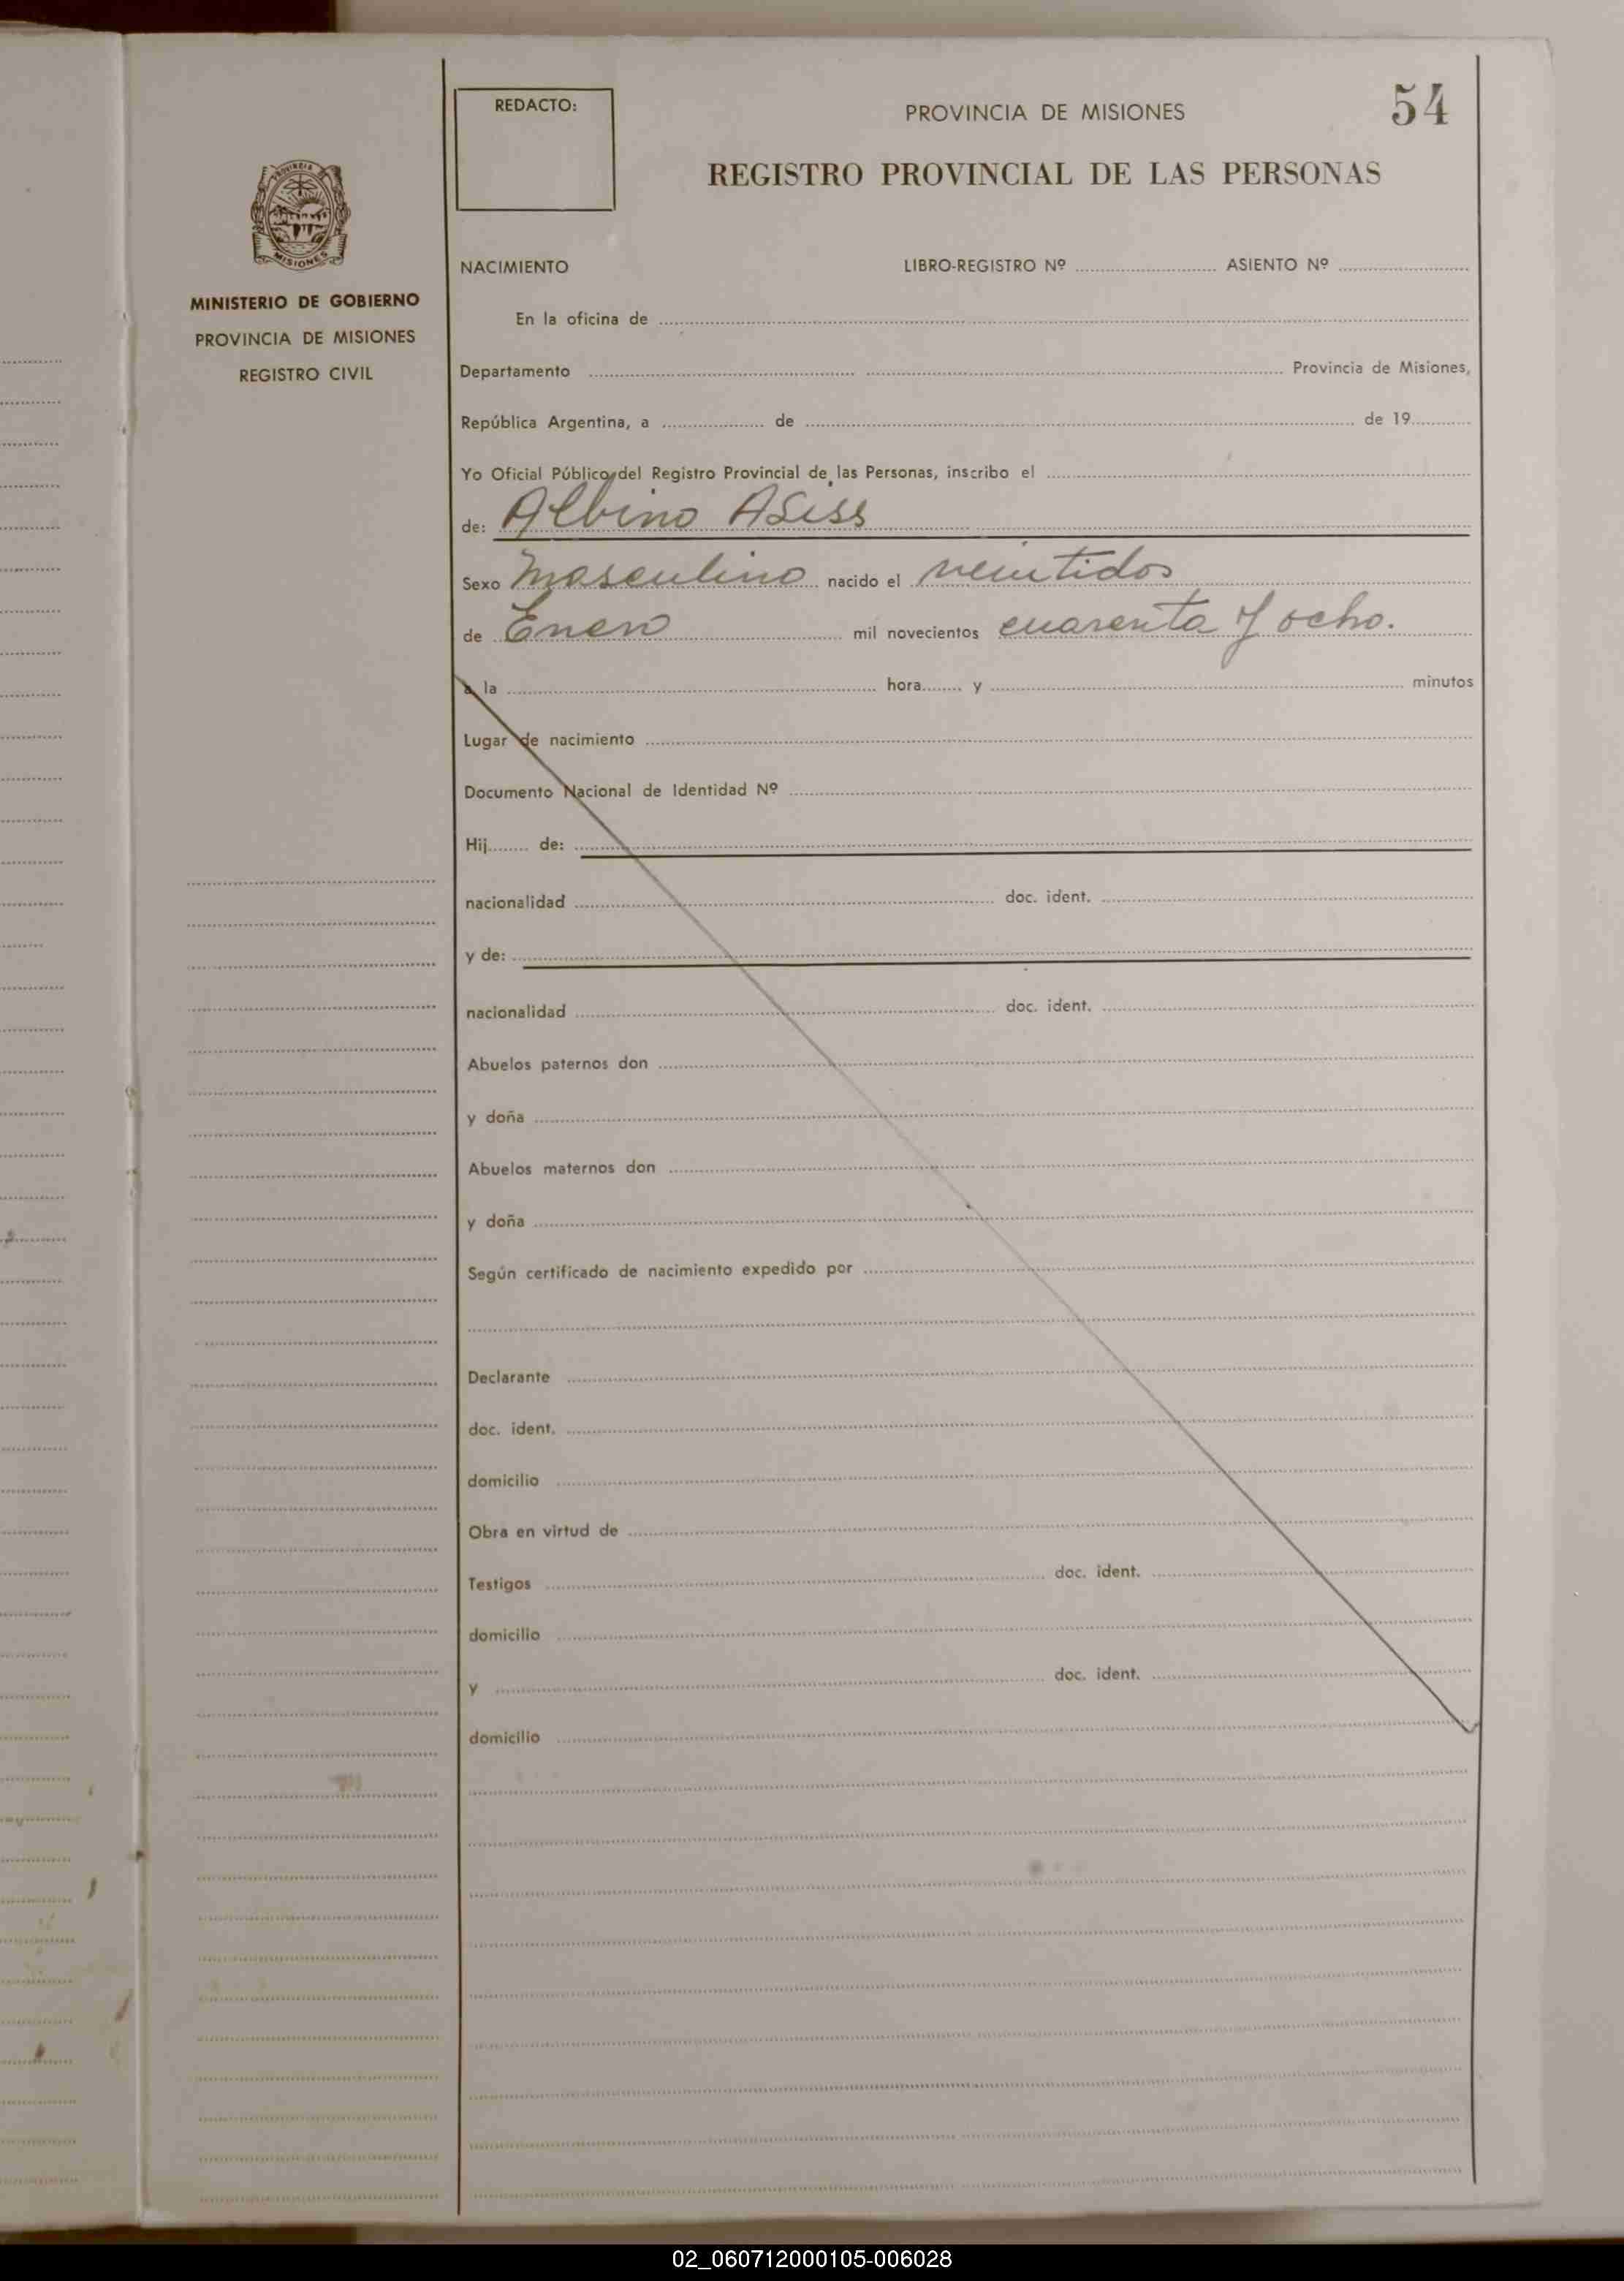 REDACTO:
PROVINCIA DE MISIONES
54
REGISTRO PROVINCIAL DE LAS PERSONAS
PROVINCIA DE
MISIONES
MINISTERIO DE GOBIERNO
PROVINCIA DE MISIONES
REGISTRO CIVIL
NACIMIENTO LIBRO-REGISTRO Nº ASIENTO Nº
En la oficina de
Departamento Provincia de Misiones,
República Argentina, a de de 19
Yo Oficial Público del Registro Provincial de las Personas, inscribo el
de: Albino Asiss
Sexo Masculino nacido el veintidos
de Enero mil novecientos cuarenta y ocho.
a la hora y minutos
Lugar de nacimiento
Documento Nacional de Identidad Nº
Hij de:
nacionalidad doc. ident.
y de:
nacionalidad doc. ident.
Abuelos paternos don
y doña
Abuelos maternos don
y doña
Según certificado de nacimiento expedido por
Declarante
doc. ident.
domicilio
Obra en virtud de
Testigos doc. ident.
domicilio
y doc. ident.
domicilio
02_060712000105-006028